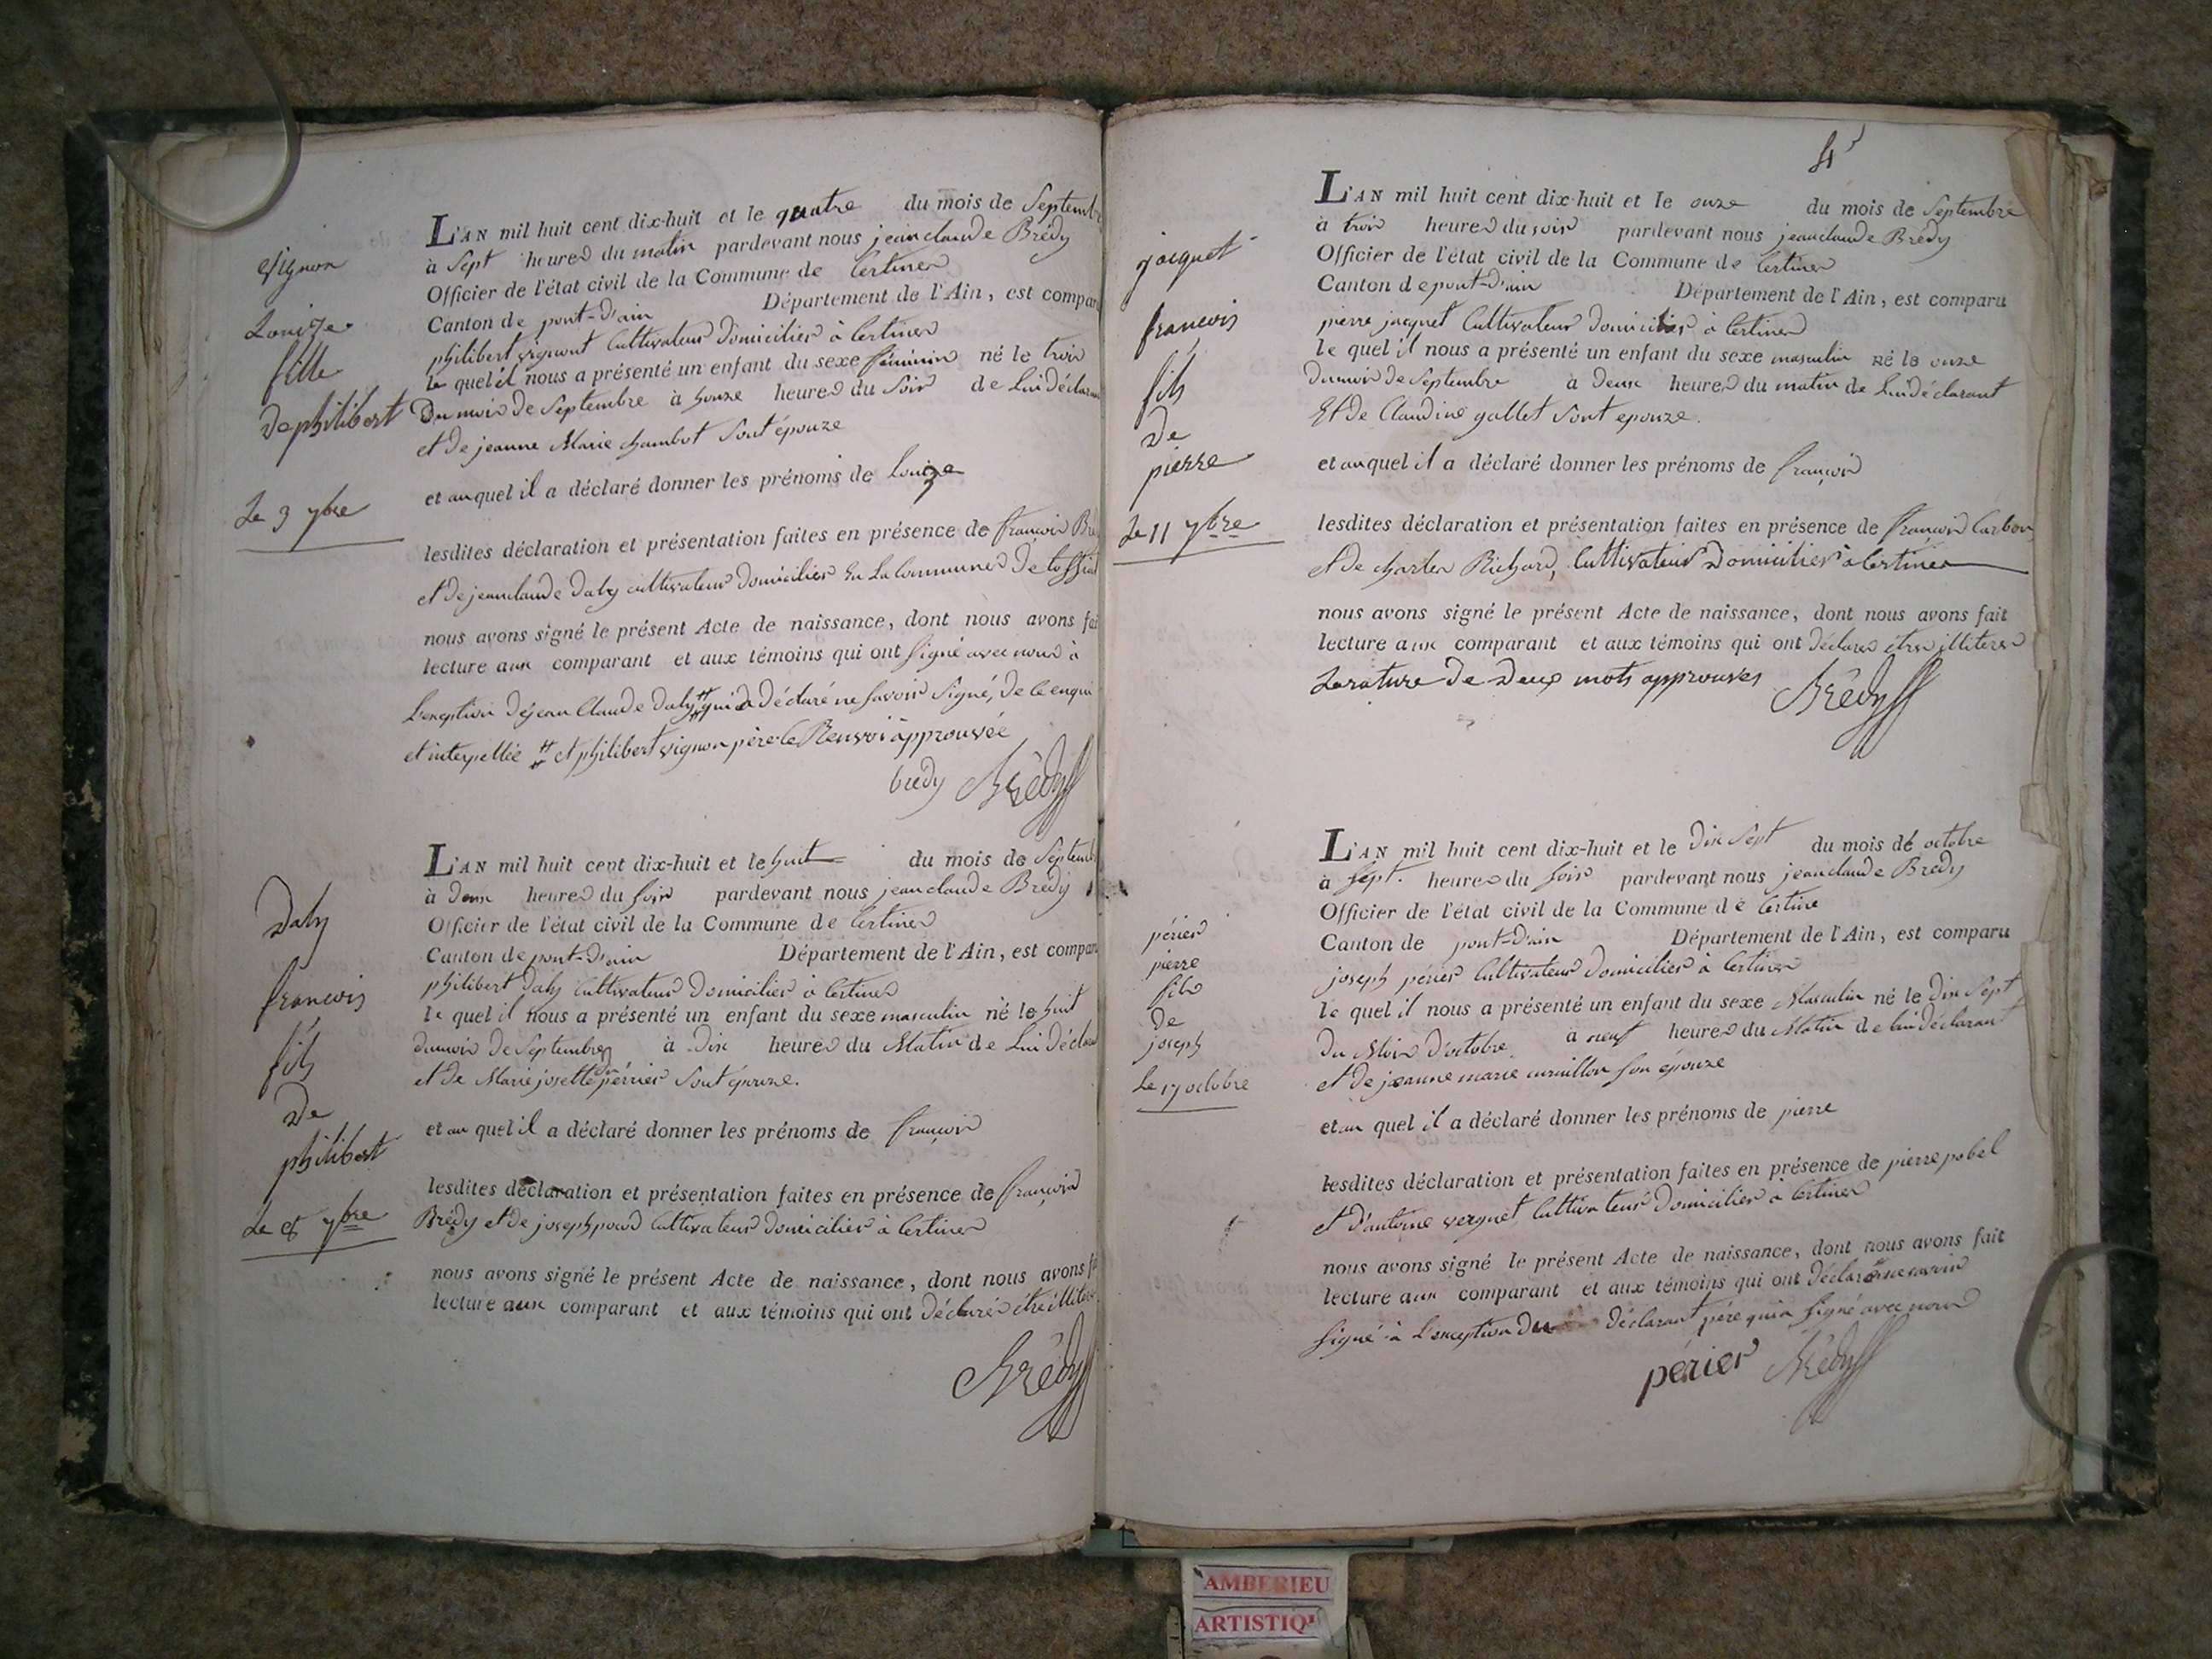 vignon
Louize
fille
de philibert
Le 3 7bre
L'AN mil huit cent dix-huit et le quatre du mois de Septemb
à Sept heures du matin pardevant nous jean claude Brédy
Officier de l'état civil de la Commune de Certines
Canton de pont-d'ain Département de l'Ain, est compar
philibert vignont Cultivateur Domicilier à Certines
le quel il nous a présenté un enfant du sexe féminin né le trois
Du mois de Septembre à honze heures du Soir de Lui déclaran
et de jeanne Marie chambot Sont épouze
et auquel il a déclaré donner les prénoms de Louize
lesdites déclaration et présentation faites en présence de francois Bré
et de jean claude Daly cultivateur domicilier En La Commune De tossiat
nous avons signé le présent Acte de naissance, dont nous avons fai
lecture aux comparant et aux témoins qui ont Signé avec nous à
L'exception de jean Claude Daly qui a déclaré ne Savoir Signé, de ce enqui
et interpellée et philibert vignon père le Renvoi approuvée
bredy Brédy
Daly
francois
fils
De
philibert
Le 8 7bre
L'AN mil huit cent dix-huit et le huit du mois de Septemb
à deux heures du Soir pardevant nous jean claude Brédy
Officier de l'état civil de la Commune de Certines
Canton de pont-d'ain Département de l'Ain, est compar
philibert Daly Cultivateur Domicilier à Certines
le quel il nous a présenté un enfant du sexe masculin né le huit
du mois de Septembre à Dix heures du Matin de Lui décla
et de Marie josette périer Sont épouze.
et au quel il a déclaré donner les prénoms de françois
lesdites déclaration et présentation faites en présence de françois
Brédy et de joseph Cultivateur domicilier à Certines
nous avons signé le présent Acte de naissance, dont nous avons f
lecture aux comparant et aux témoins qui ont Déclarés être illitere
Brédy
4
jacquet
francois
fils
de
pierre
Le 11 7bre
L'AN mil huit cent dix-huit et le onze du mois de Septembre
à trois heures du soir pardevant nous jean claude Brédy
Officier de l'état civil de la Commune de Certines
Canton de pont-d'ain Département de l'Ain, est comparu
pierre jacquet Cultivateur domicilier à Certines
le quel il nous a présenté un enfant du sexe masculin né le onze
du mois de Septembre à Deux heures du matin de Lui déclarant
Et de Claudine gallet Sont epouze.
et auquel il a déclaré donner les prénoms de françois
lesdites déclaration et présentation faites en présence de françois Carbon
et de charles Richard, Cultivateur Domicilier à Certines
nous avons signé le présent Acte de naissance, dont nous avons fait
lecture aux comparant et aux témoins qui ont Déclarés être illiteres
La rature De Deux mots approuvés Brédy
périer
pierre
fils
de
joseph
Le 17 octobre
L'AN mil huit cent dix-huit et le Dix Sept du mois de octobre
à Sept. heures du Soir pardevant nous jean claude Brédy
Officier de l'état civil de la Commune de Certine
Canton de pont-d'ain Département de l'Ain, est comparu
joseph périer Cultivateur domicilier à Certines
le quel il nous a présenté un enfant du sexe Masculin né le Dix Sept
du Mois d'octobre à neuf heures du Matin de lui déclarant
et de jeanne marie Son épouze
et au quel il a déclaré donner les prénoms de pierre
lesdites déclaration et présentation faites en présence de pierre pobel
et d'antoine verguet Cultivateur Domicilier à Certines
nous avons signé le présent Acte de naissance, dont nous avons fait
lecture aux comparant et aux témoins qui ont déclaré ne savoir
Signé à L'exception Du déclarant père qui a Signé avec nous
périer Brédy
AMBERIEU
ARTISTIQ